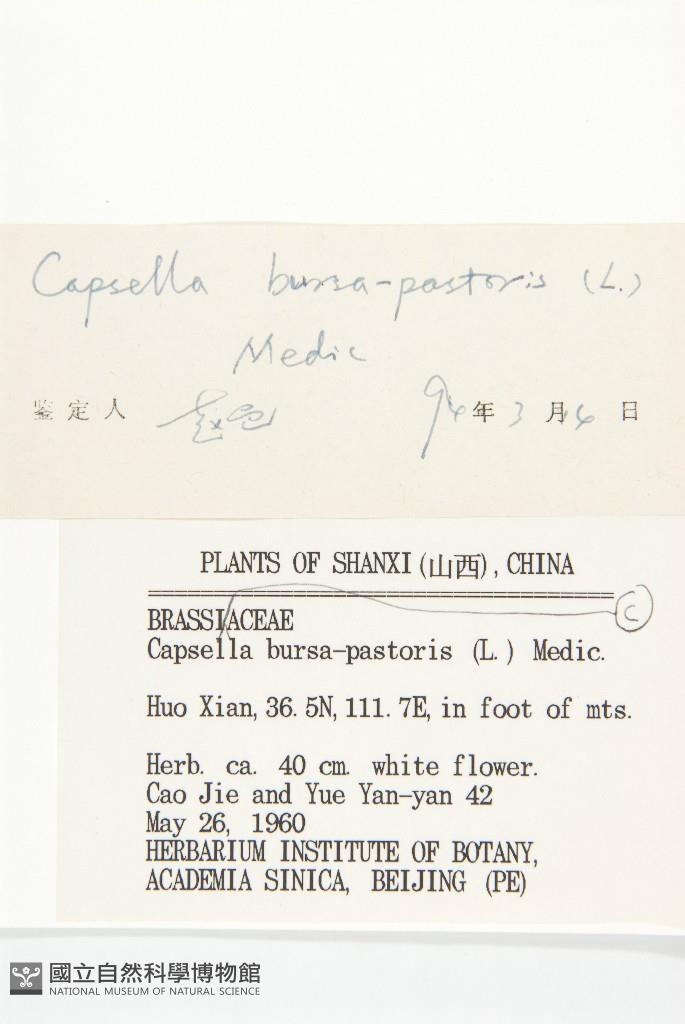 Capsella bursa-pastoris (L.)
Medic
鉴定人 94年3月4日
PLANTS OF SHANXI (山西), CHINA
BRASSIACEAE
C
Capsella bursa-pastoris (L.) Medic.
Huo Xian, 36.5N, 111.7E, in foot of mts.
Herb. ca. 40 cm. white flower.
Cao Jie and Yue Yan-yan 42
May 26, 1960
HERBARIUM INSTITUTE OF BOTANY,
ACADEMIA SINICA, BEIJING (PE)
國立自然科學博物館
NATIONAL MUSEUM OF NATURAL SCIENCE